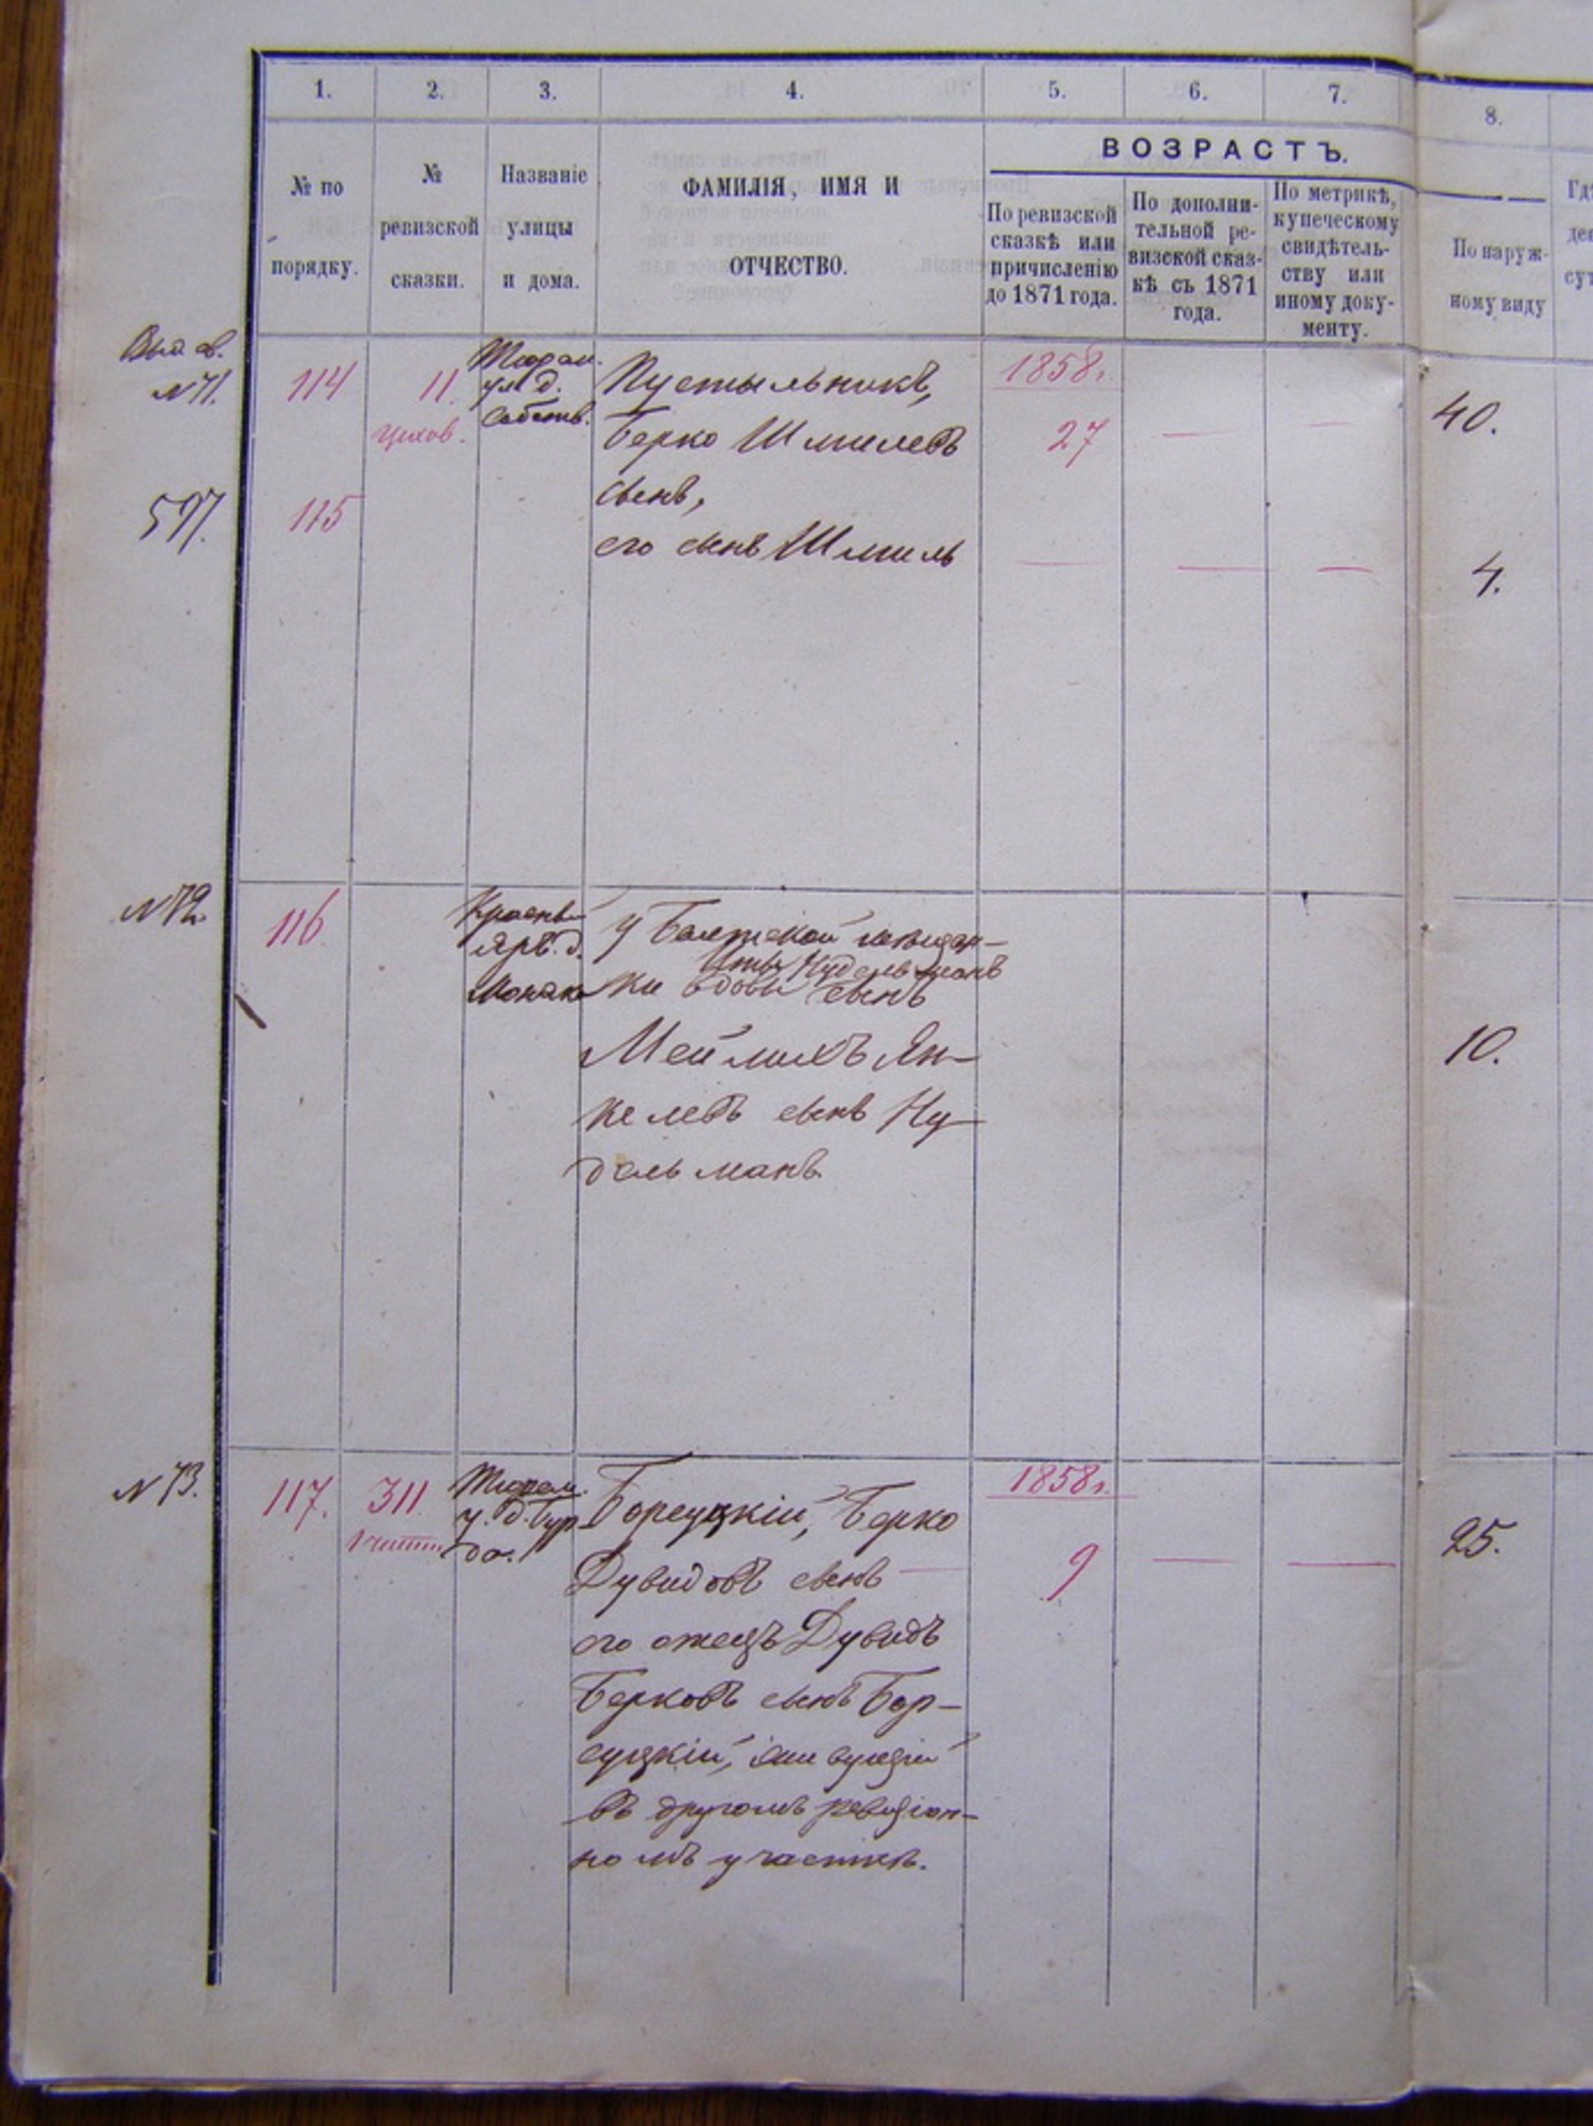 1.
2.
3.
4.
5.
6.
7.
8.
№ по
порядку.
№
ревизской
сказки.
Названіе
улицы
и дома.
ФАМИЛІЯ, ИМЯ И
ОТЧЕСТВО.
ВОЗРАСТЪ.
По ревизской
сказкѣ или
причисленію
до 1871 года.
По дополни-
тельной ре-
визской сказ-
кѣ съ 1871
года.
По метрикѣ,
купеческому
свидѣтель-
ству или
иному доку-
менту.
По наруж-
ному виду
Гдѣ
сут
N 71.
597.
114
115
11.
цехов.
Тюрем.
ул д.
собств.
Пустыльникъ,
Берко Шмилевъ
сынъ,
его сынъ Шмиль
1858г.
27
40.
4.
N 72.
116
Красный
Яръ. д.
У Балтской
ки вдовы Нудельманъ
сынъ
Мейлихъ Ян-
келевъ сынъ Ну-
дельманъ.
10.
N 73.
117.
311.
Тюрем.
у. д. Бур-
да.
Борсуцкій, Берко
Дувидовъ сынъ
его отецъ Дувидъ
Берковъ сынъ Бор-
суцкій, живущій
въ другомъ ревизіон-
номъ участкѣ.
1858г.
9
25.